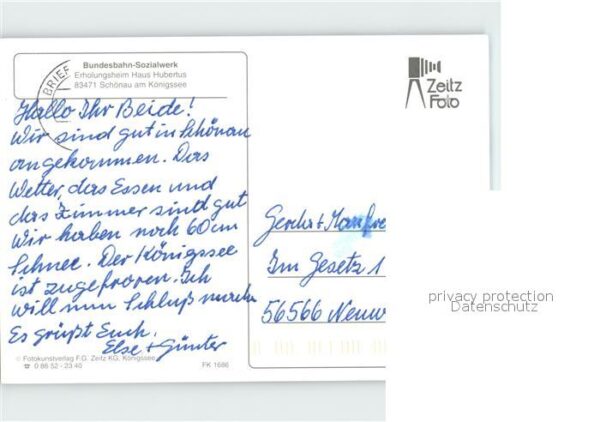 Bundesbahn-Sozialwerk
Erholungsheim Haus Hubertus
83471 Schönau am Königssee
BRIEF
Hallo Ihr Beide!
Wir sind gut in Schönau
angekommen. Das
Wetter, das Essen und
das Zimmer sind gut
Wir haben noch 60cm
Schnee. Der Königssee
ist zugefroren. Ich
will nun Schluß machen
Es grüßt Euch.
Else + Günter
© Fotokunstverlag F.G. Zeitz KG, Königssee
☎ 0 86 52 - 23 40
FK 1686
Zeitz
Foto
Im Gesetz 1
56566 Neuw
privacy protection
Datenschutz